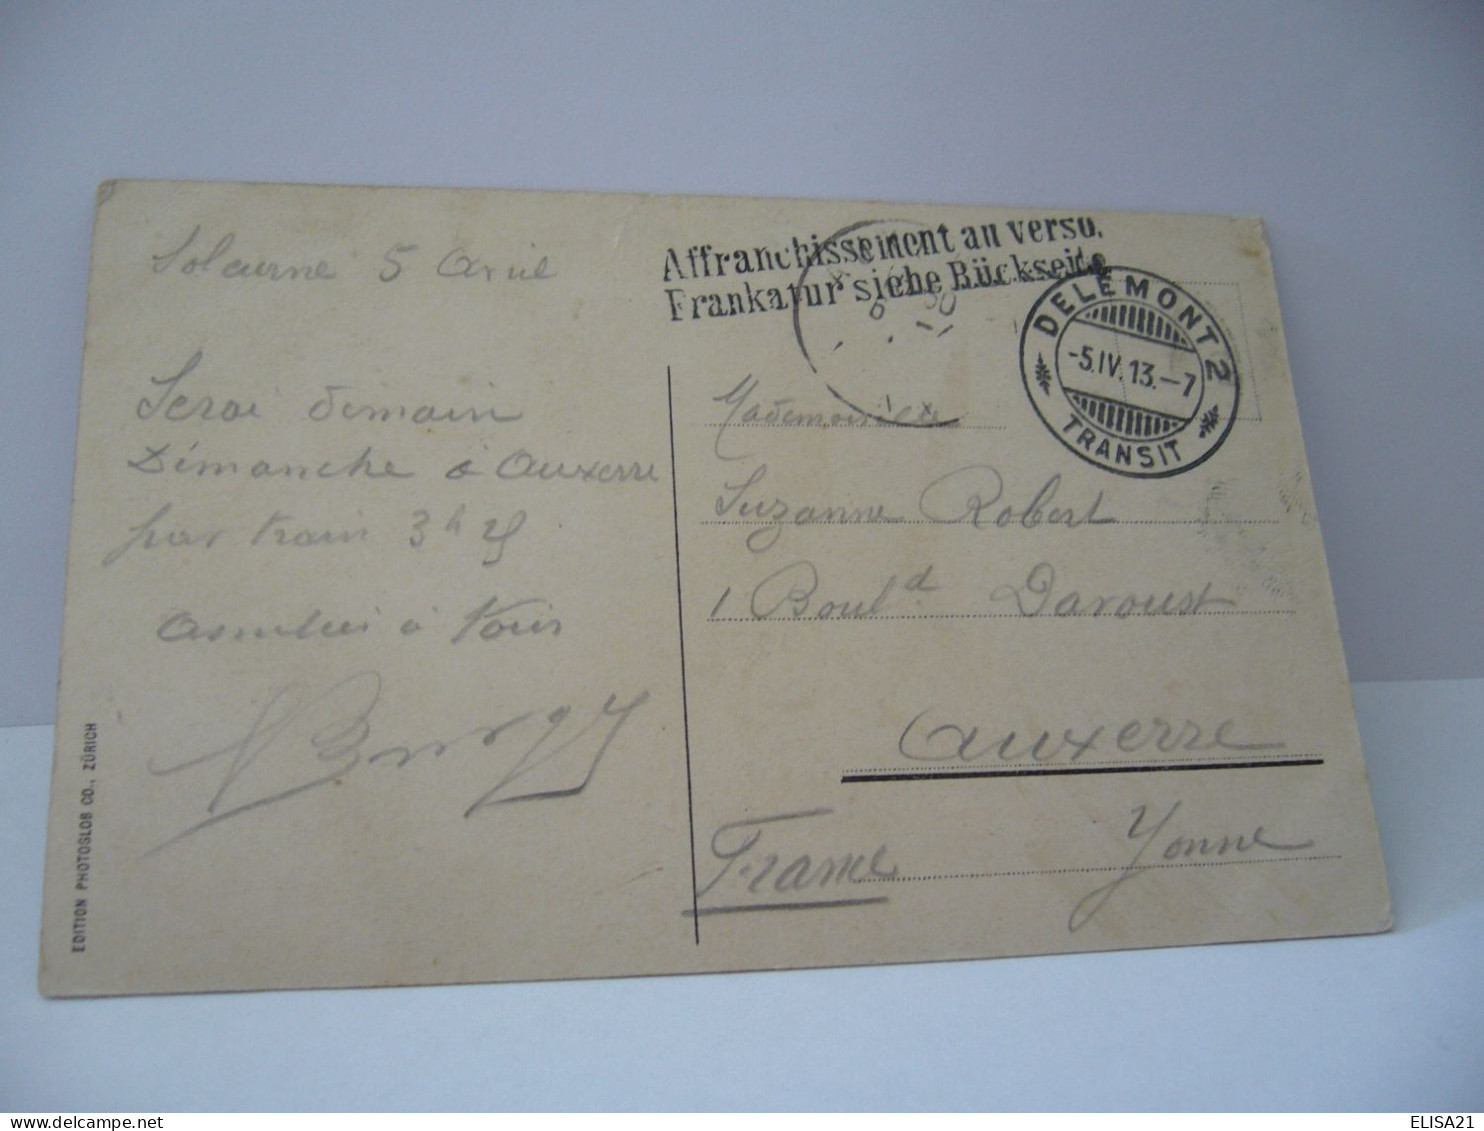 Soleurne 5 Avril
Serai demain
Dimanche à Auxerre
par train 3h 25
à tous
EDITION PHOTOGLOB CO., ZÜRICH
Affranchissement au verso.
Frankatur siehe Rückseite.
DELÉMONT 2
-5.IV.13.-7
TRANSIT
Mademoiselle
Suzanne Robert
1 Boul.d Davoust
Auxerre
Yonne
France
ELISA21